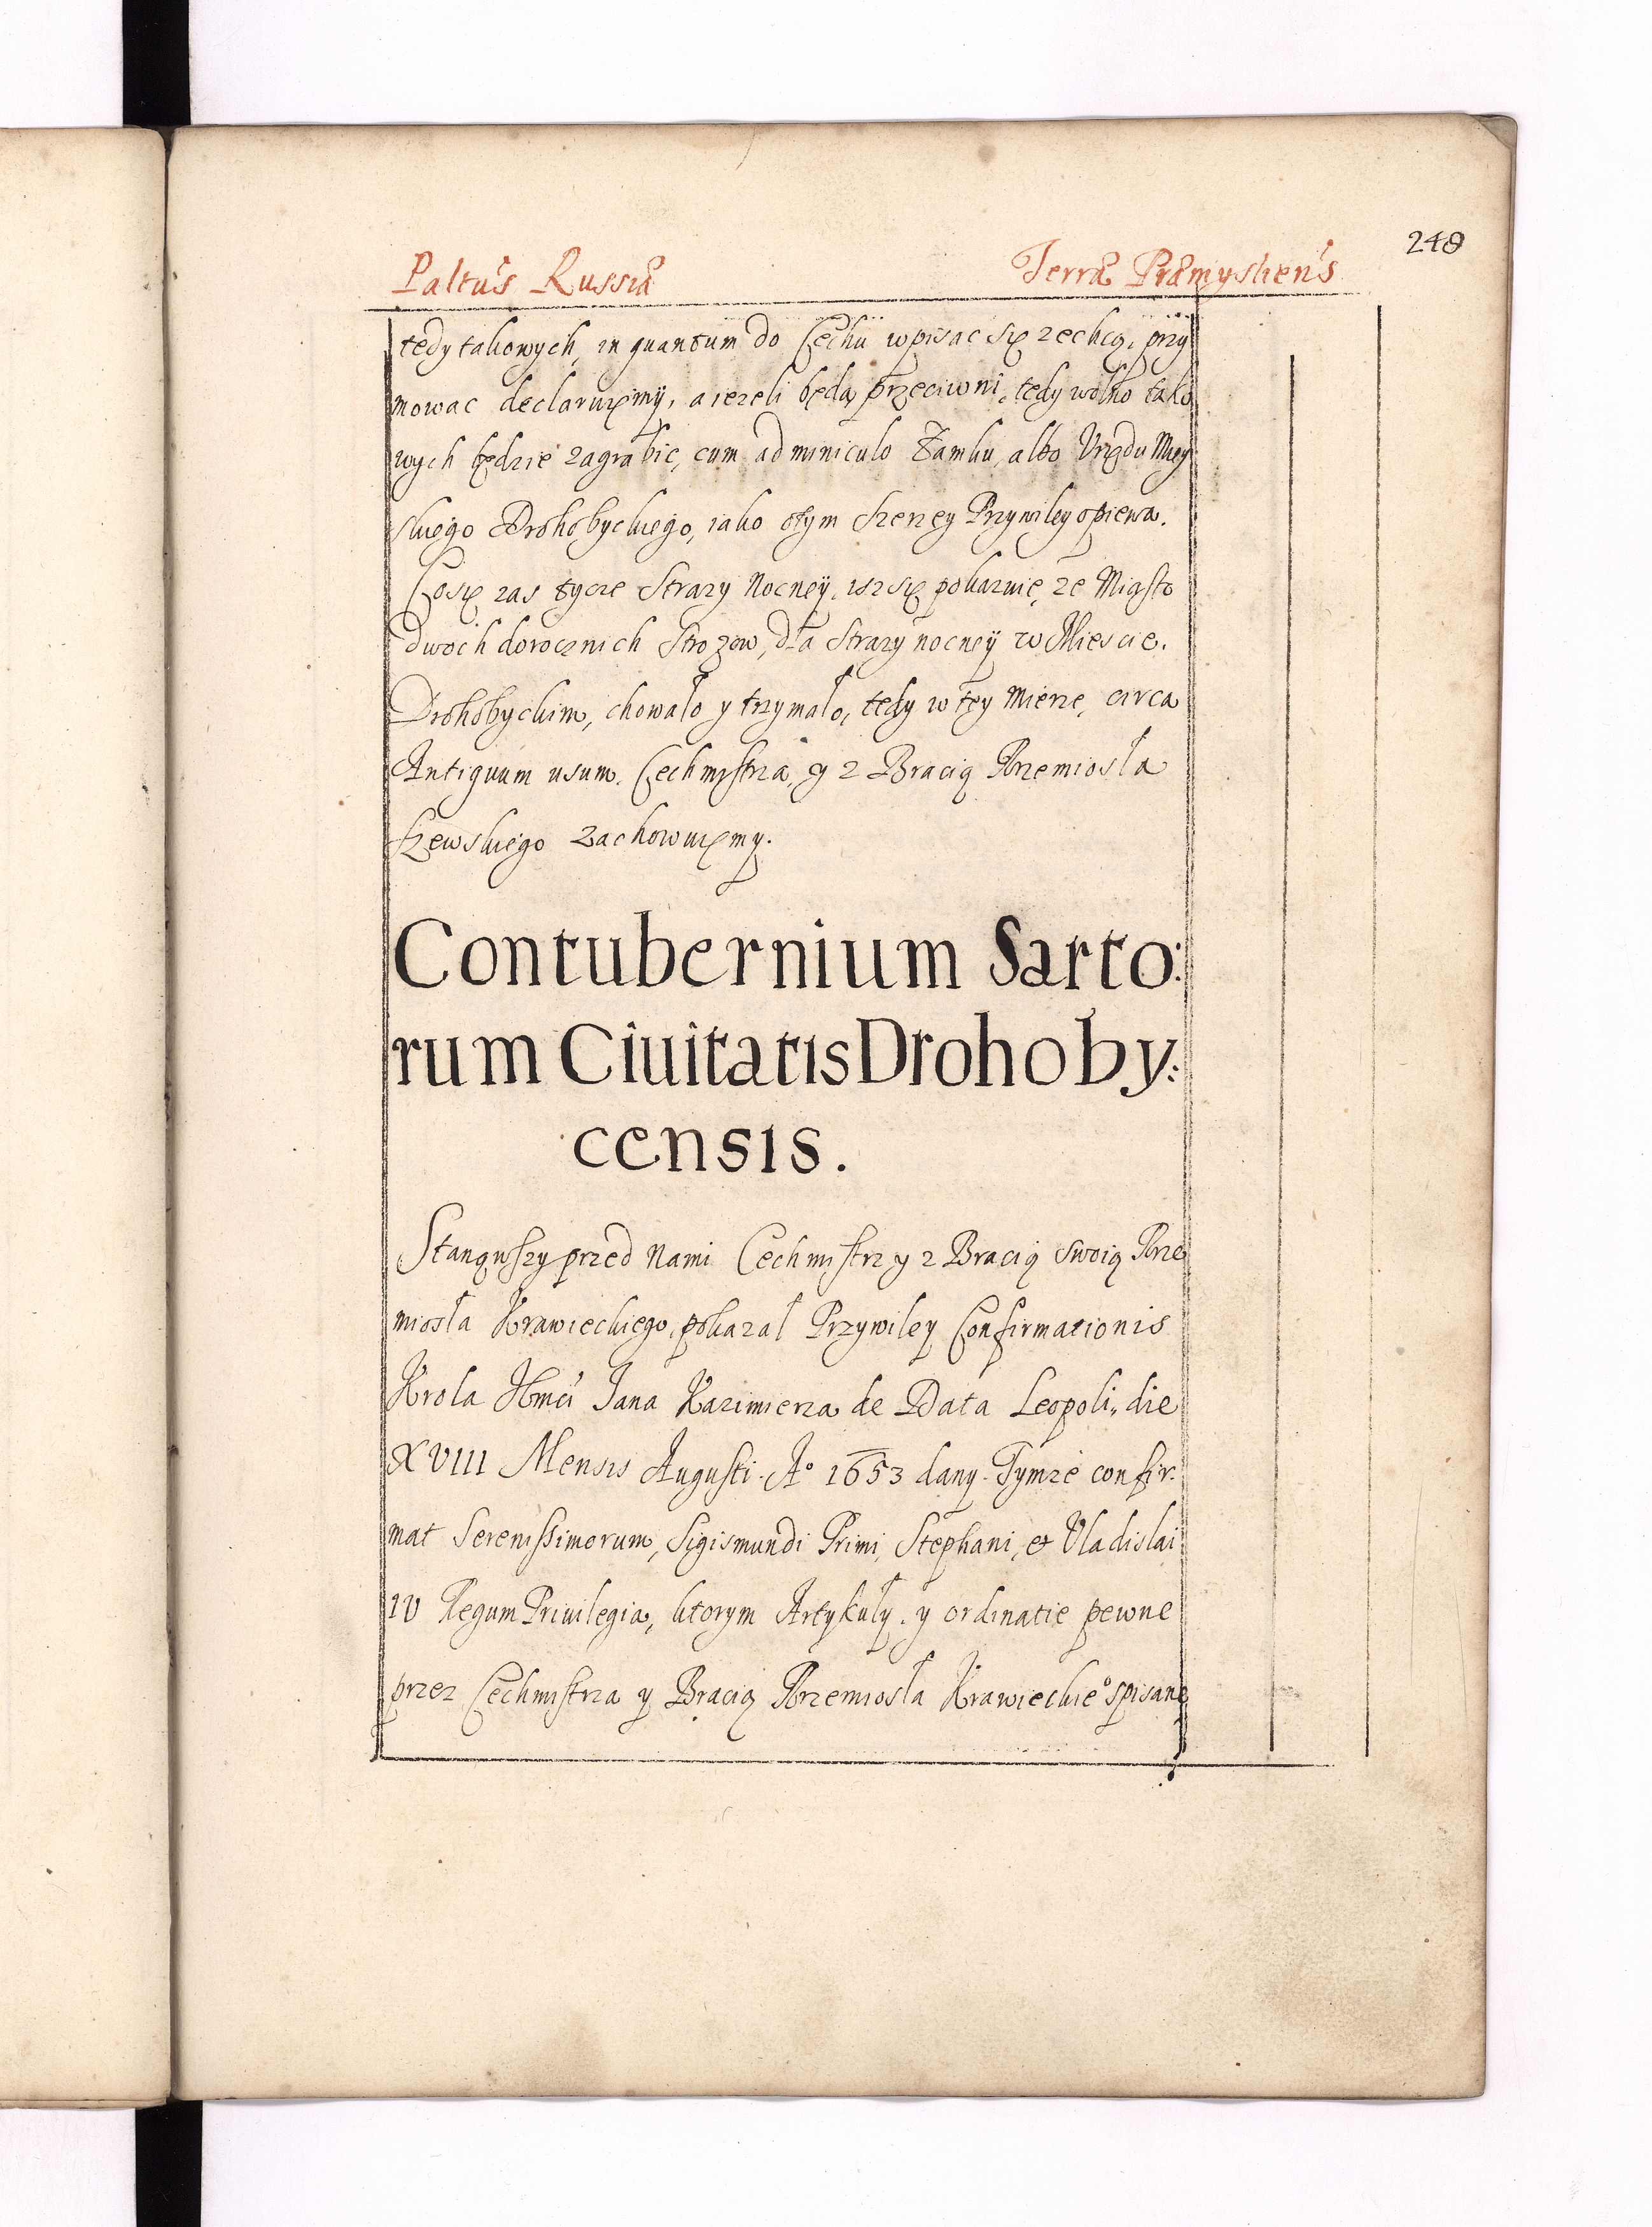 Paltus Russiæ Terræ Præmysliens
248
tedy takowych, in quantum do Cechu wpisac się zechcą, przy
mowac declaruięmÿ, a iezeli będą przeciwni, tedy wolno tako
wych będzie zagrabic, cum adminiculo Zamku, albo Vrzędu Miey
skiego Drohobyckiego, iako otym szerzey Przywiley opiewa.
Co się zas tycze Strazy Nocneÿ, isz się pokazuie, ze Miasto
dwoch dorocznich Strozow, dla Strazy nocneÿ w Miescie.
Drohobyckim, chowało y trzymało, tedy w tey Mierze, circa
Antiquum usum. Cechmistrza, y z Bracią Rzemiosła
szewskiego Zachowuięmy.
Contubernium Sarto:
rum Ciuitatis Drohoby:
censis.
Stanąwszy przed Nami Cechmistrz y z Bracią swoią Rze
miosła Krawieckiego, pokazał Przywiley Confirmationis
Krola Jmci Jana Kazimierza de Data Leopoli, die
XVIII Mensis Augusti. Aº 1653 dany. Tymze confir.
mat Serenissimorum, Sigismundi Primi, Stephani, et Vladislai
IV Regum Priuilegia, ktorym Artykuły. y ordinatie pewne
przez Cechmistrza y Bracią Rzemiosła Krawieckieº spisane